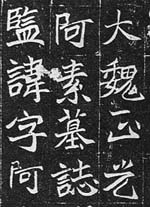 大魏正光
阿素墓誌
監諱字阿